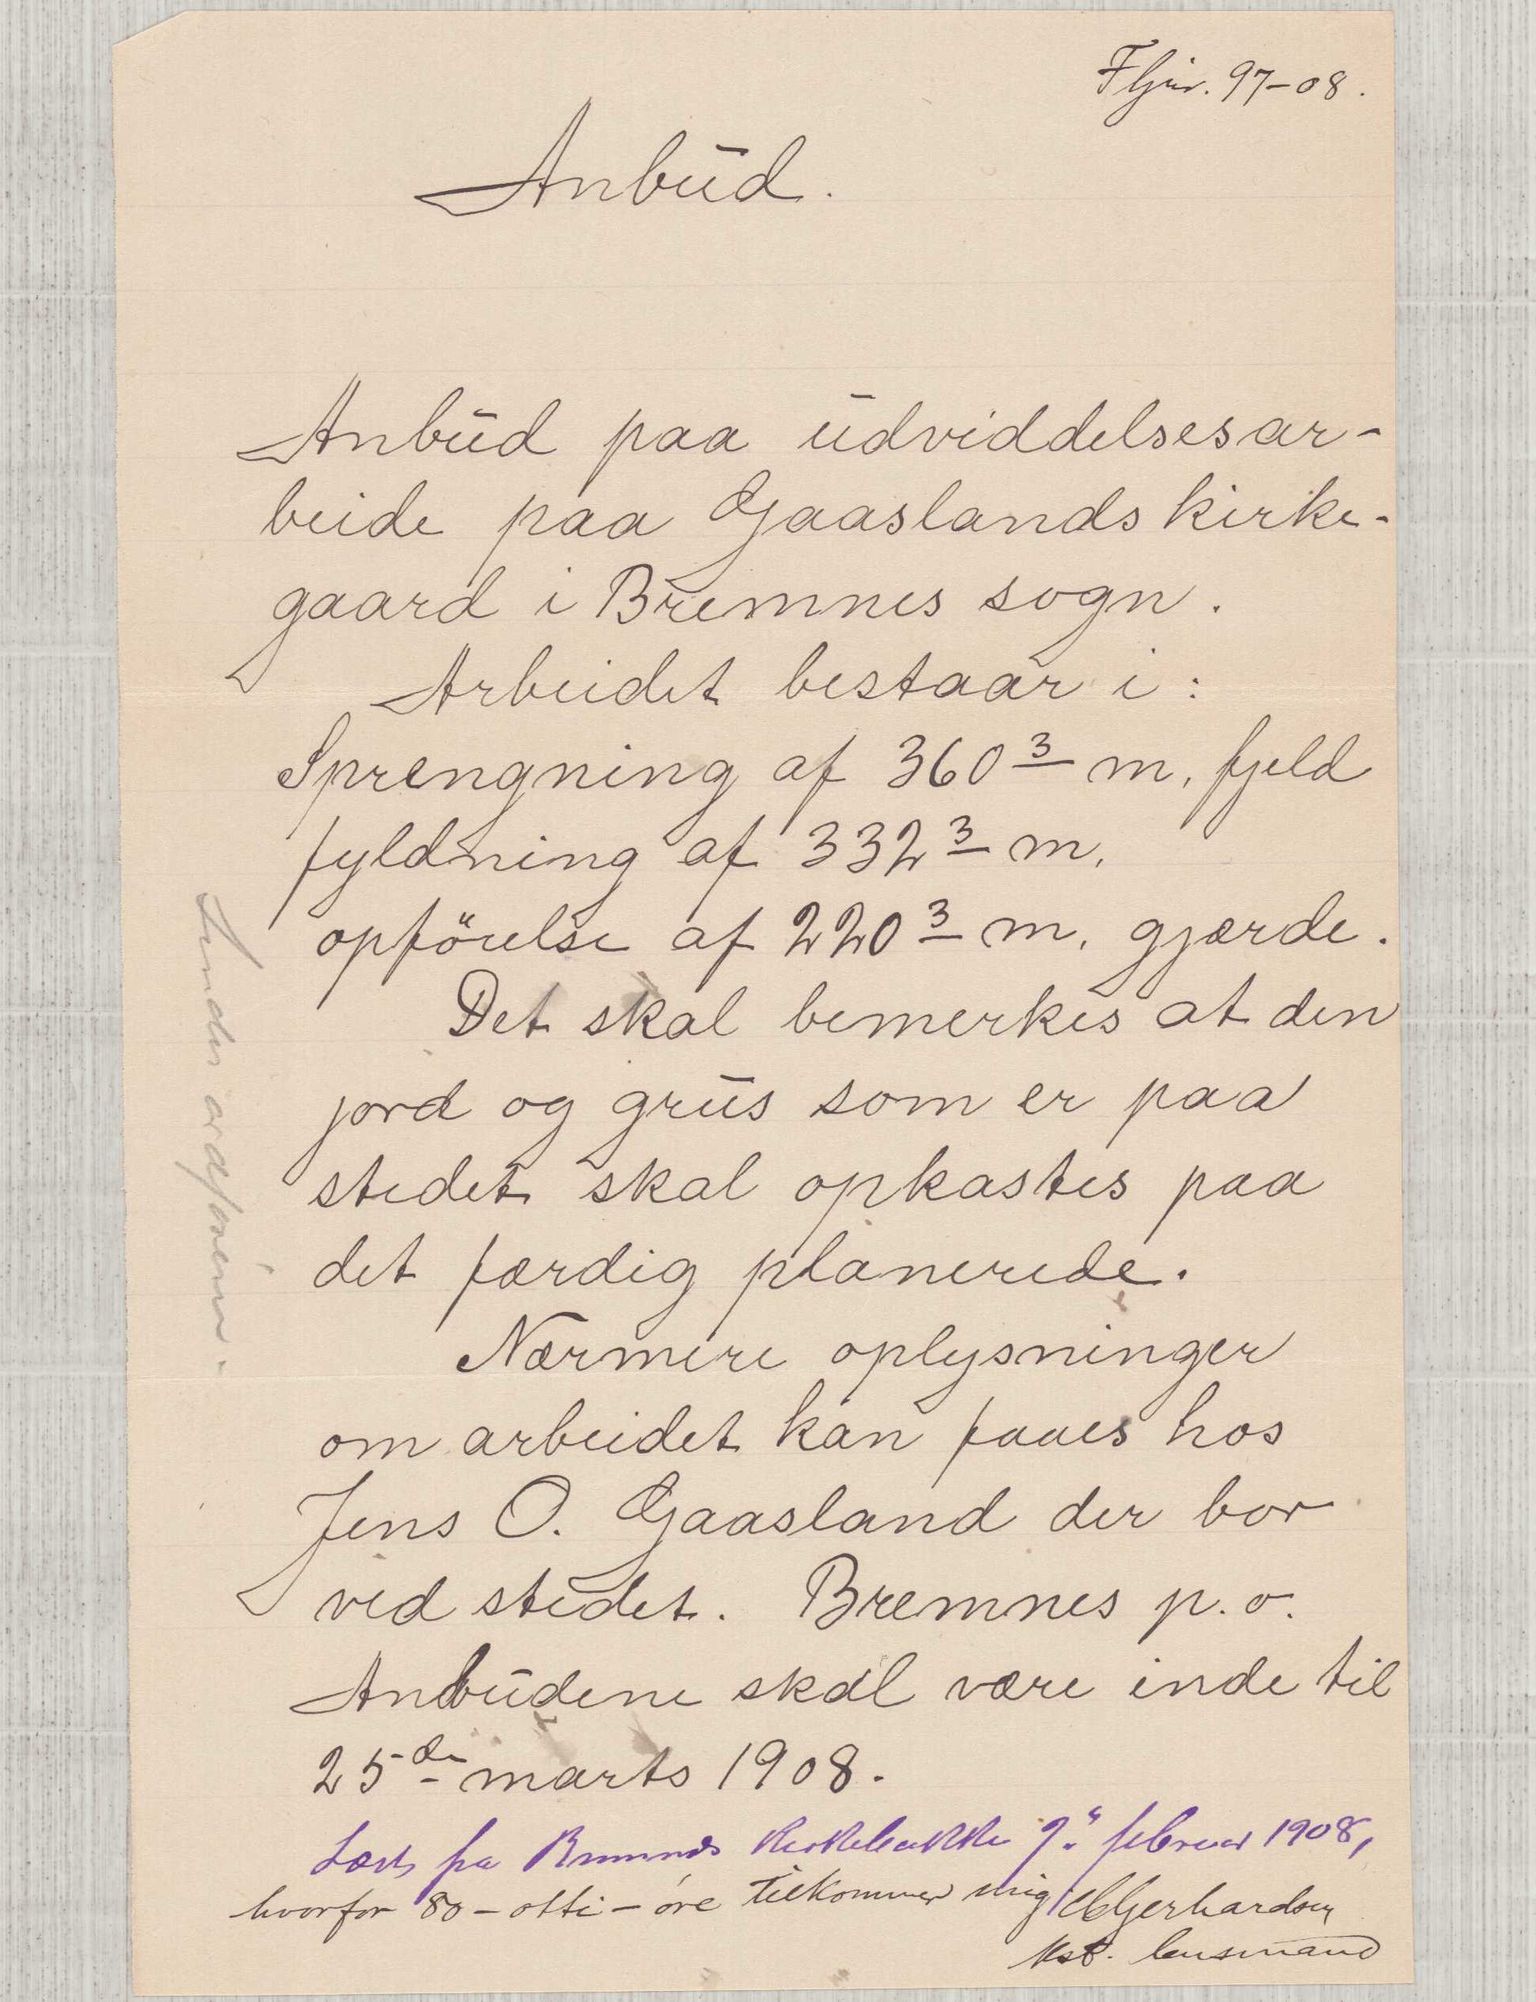 97-08.
Anbūd.
Anbūd paa ūdviddelsesar-
beide paa Gaaslands kirke-
gaard i Bremnes sogn.
Arbeidet bestaar i:
Sprengning af 360 3 m. fjeld
fyldning af 332 3 m.
opförelse af 220 3 m. gjærde.
Det skal bemerkes at den
jord og grūs som er paa
stedet skal opkastes paa
det færdig planerede.
Nærmere oplysninger
om arbeidet kan faaes hos
Jens O. Gaasland der bor
ved stedet. Bremnes p.o.
Anbūdene skal være inde til
25de marts 1908.
Læst fra Bremnes Kirkebakke 9. februar 1908,
hvorfor 80 - otti - øre tilkommer mig Gjerhardsen
Kst. lensmand